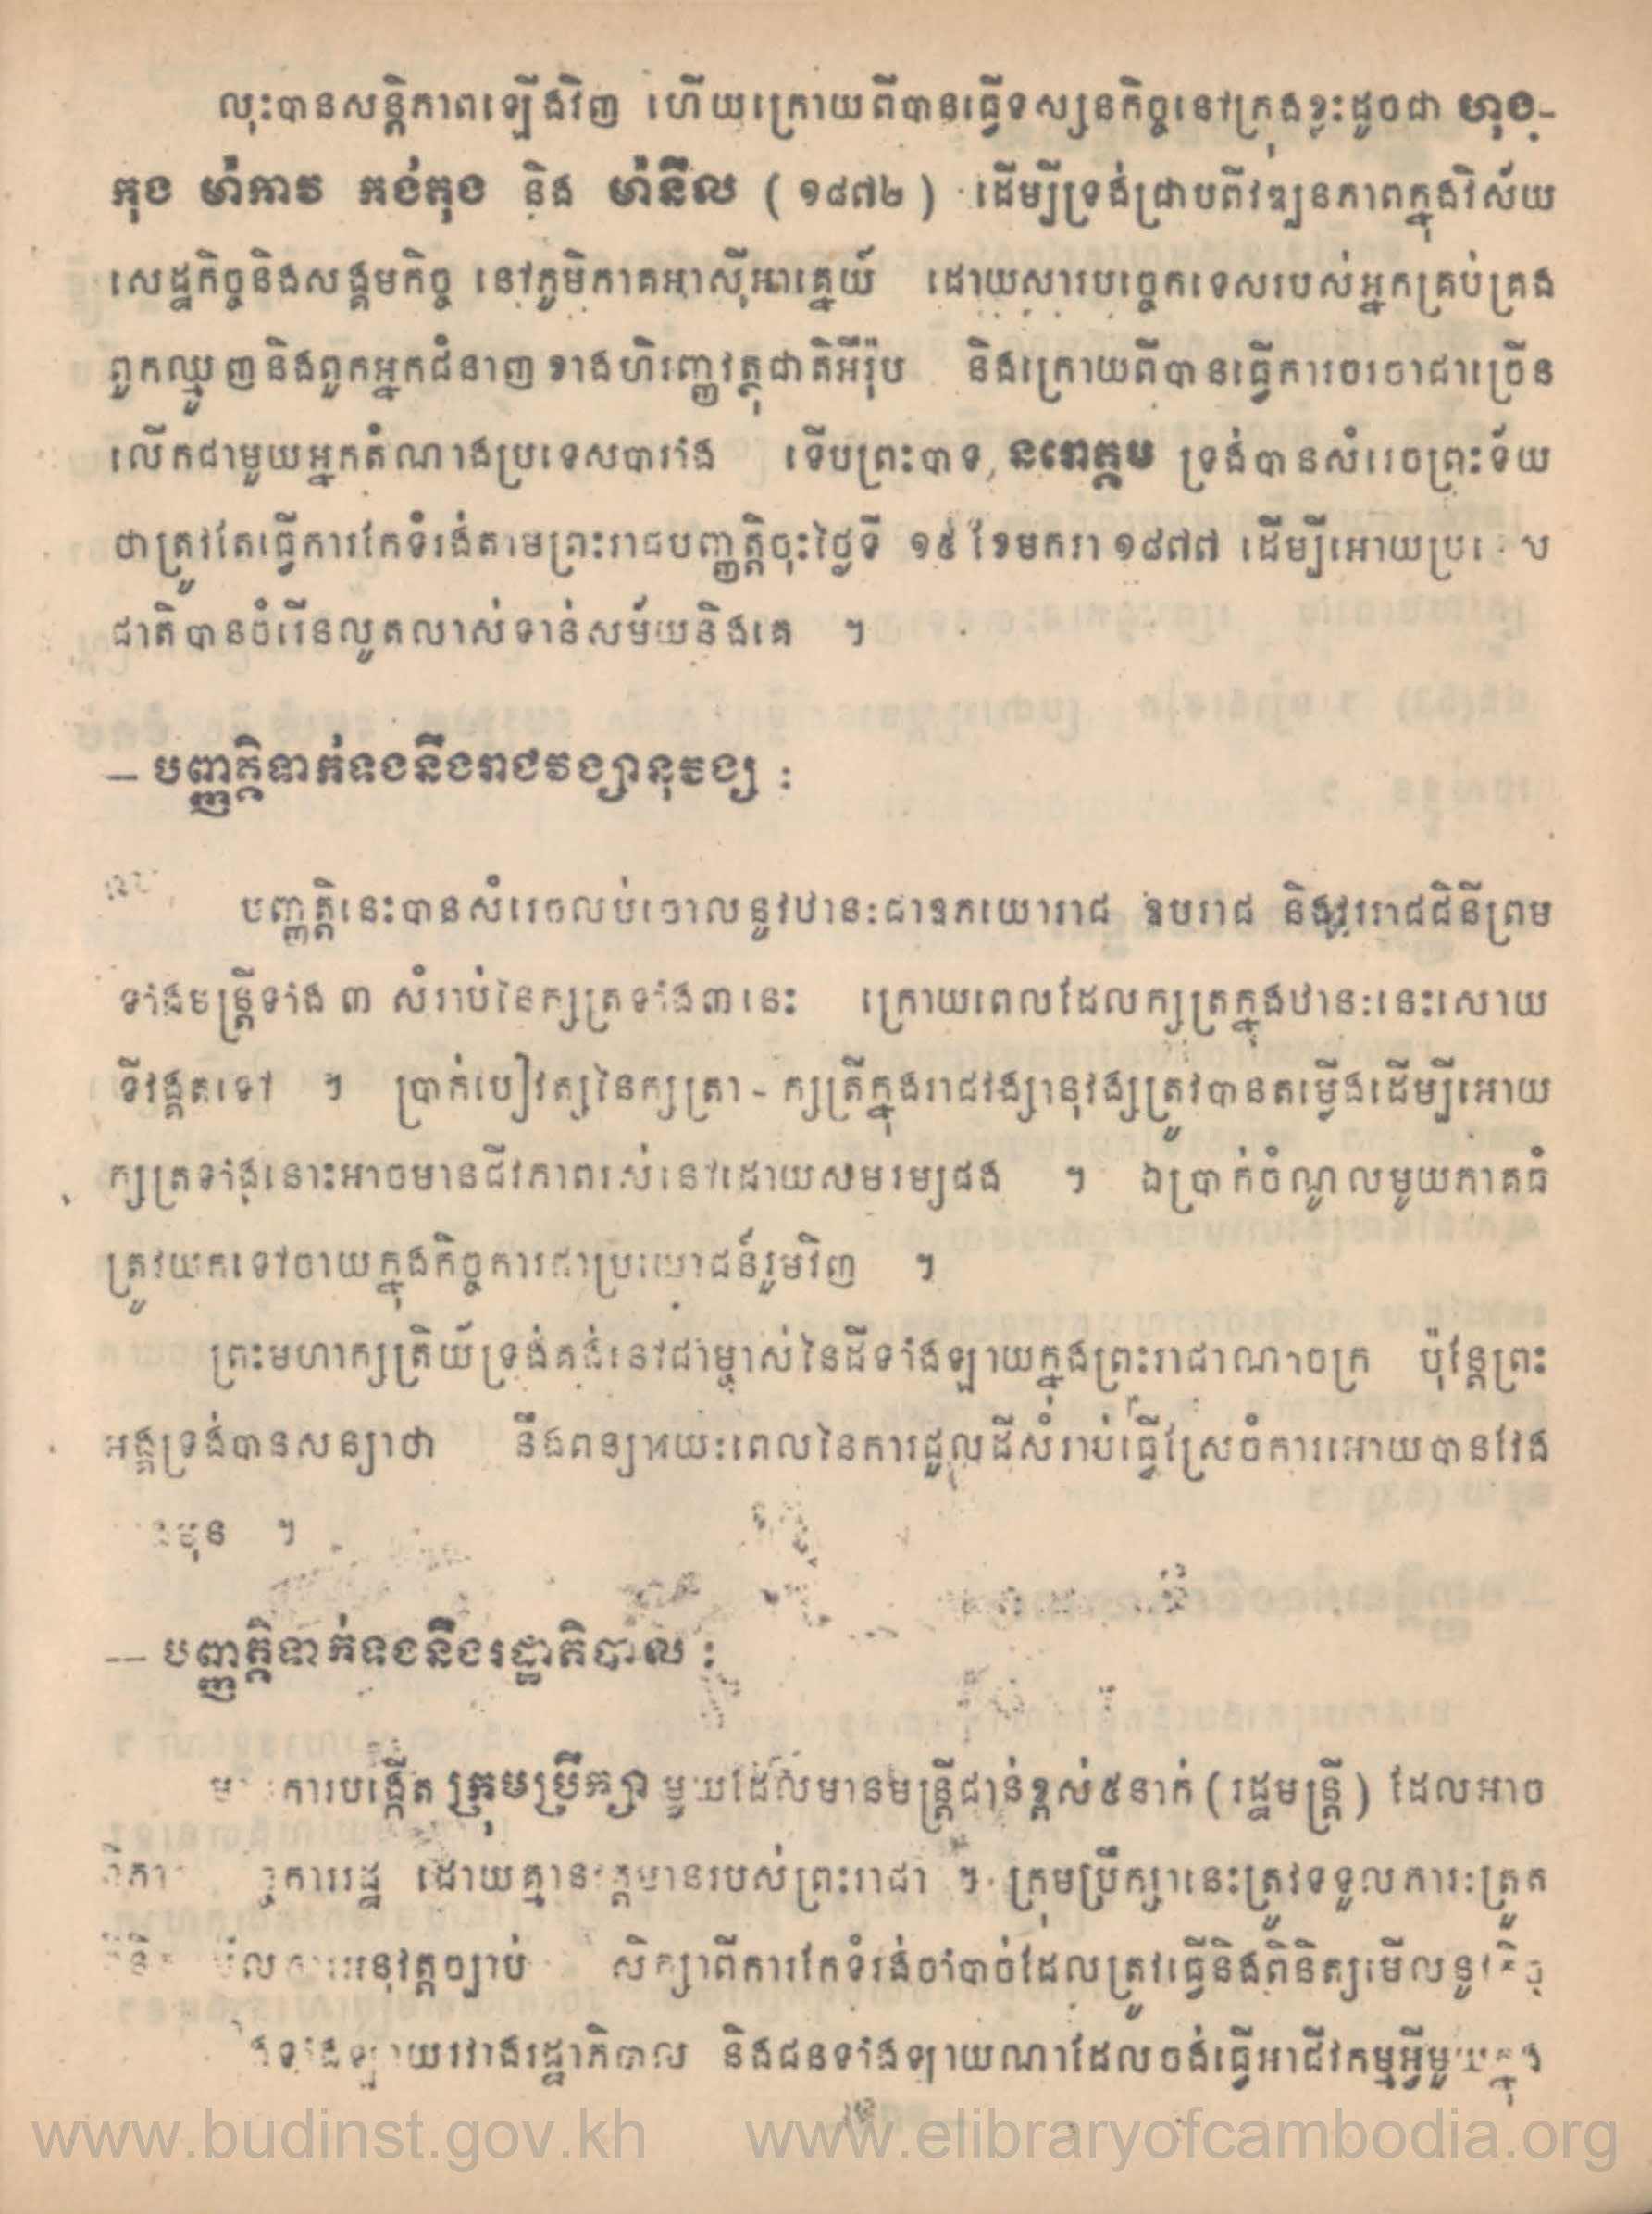 លុះបានសន្តិភាពឡើងវិញ ហើយក្រោយពីបានធ្វើទស្សនកិច្ចនៅក្រុងខ្លះដូចជា ហុង-
កុង ម៉ាកាវ កង់តុង និង ម៉ានីល ( ១៨៧២ ) ដើម្បីទ្រង់ជ្រាបពីវឌ្ឍនភាពក្នុងវិស័យ
សេដ្ឋកិច្ចនិងសង្គមកិច្ច នៅភូមិភាគអាស៊ីអាគ្នេយ៍ ដោយសារបច្ចេកទេសរបស់អ្នកគ្រប់គ្រង
ពួកឈ្មួញនិងពួកអ្នកជំនាញខាងហិរញ្ញវត្ថុជាតិអឺរ៉ុប និងក្រោយពីបានធ្វើការចរចាជាច្រើន
លើកជាមួយអ្នកតំណាងប្រទេសបារាំង ទើបព្រះបាទ នរោត្តម ទ្រង់បានសំរេចព្រះទ័យ
ថាត្រូវតែធ្វើការកែទំរង់តាមព្រះរាជបញ្ញត្តិចុះថ្ងៃទី ១៥ ខែមករា ១៨៧៧ ដើម្បីអោយ
ជាតិបានចំរើនលូតលាស់ទាន់សម័យនិងគេ ។
– បញ្ញត្តិទាក់ទងនឹងរាជវង្សានុវង្ស :
បញ្ញត្តិនេះបានសំរេចលប់ចោលនូវឋានៈជាឧភយោរាជ ឧបរាជ និងវររាជជិនីព្រម
ទាំងមន្ត្រីទាំង ៣ សំរាប់នៃក្សត្រទាំង៣នេះ ក្រោយពេលដែលក្សត្រក្នុងឋានៈនេះសោយ
ទីវង្គតទៅ ។ ប្រាក់បៀវត្សនៃក្សត្រា - ក្សត្រីក្នុងរាជវង្សានុវង្សត្រូវបានតម្លើងដើម្បីអោយ
ក្សត្រទាំងនោះអាចមានជីវភាពរស់នៅដោយសមរម្យផង ។ ឯប្រាក់ចំណូលមួយភាគធំ
ត្រូវយកទៅចាយក្នុងកិច្ចការជាប្រយោជន៍រួមវិញ ។
ព្រះមហាក្សត្រិយ៍ទ្រង់គង់នៅជាម្ចាស់នៃដីទាំងឡាយក្នុងព្រះរាជាណាចក្រ ប៉ុន្តែព្រះ
អង្គទ្រង់បានសន្យាថា នឹងពន្យារយៈពេលនៃការជួលដីសំរាប់ធ្វើស្រែចំការអោយបានវែង
មុន ។
– បញ្ញត្តិទាក់ទងនឹងរដ្ឋាភិបាល :
ការបង្កើត ក្រុមប្រឹក្សា មួយដែលមានមន្ត្រីជាន់ខ្ពស់៥នាក់ ( រដ្ឋមន្ត្រី ) ដែលអាច
ការរដ្ឋ ដោយគ្មានវត្តមានរបស់ព្រះរាជា ។ ក្រុមប្រឹក្សានេះត្រូវទទួលភារៈត្រួត
អនុវត្តច្បាប់ សិក្សាពីការកែទំរង់ចាំបាច់ដែលត្រូវធ្វើនិងពិនិត្យមើលនូវ
ទាំងឡាយរវាងរដ្ឋាភិបាល និងជនទាំងឡាយណាដែលចង់ធ្វើអាជីវកម្មអ្វីមួយក្នុង
www.budinst.gov.kh www.elibraryofcambodia.org